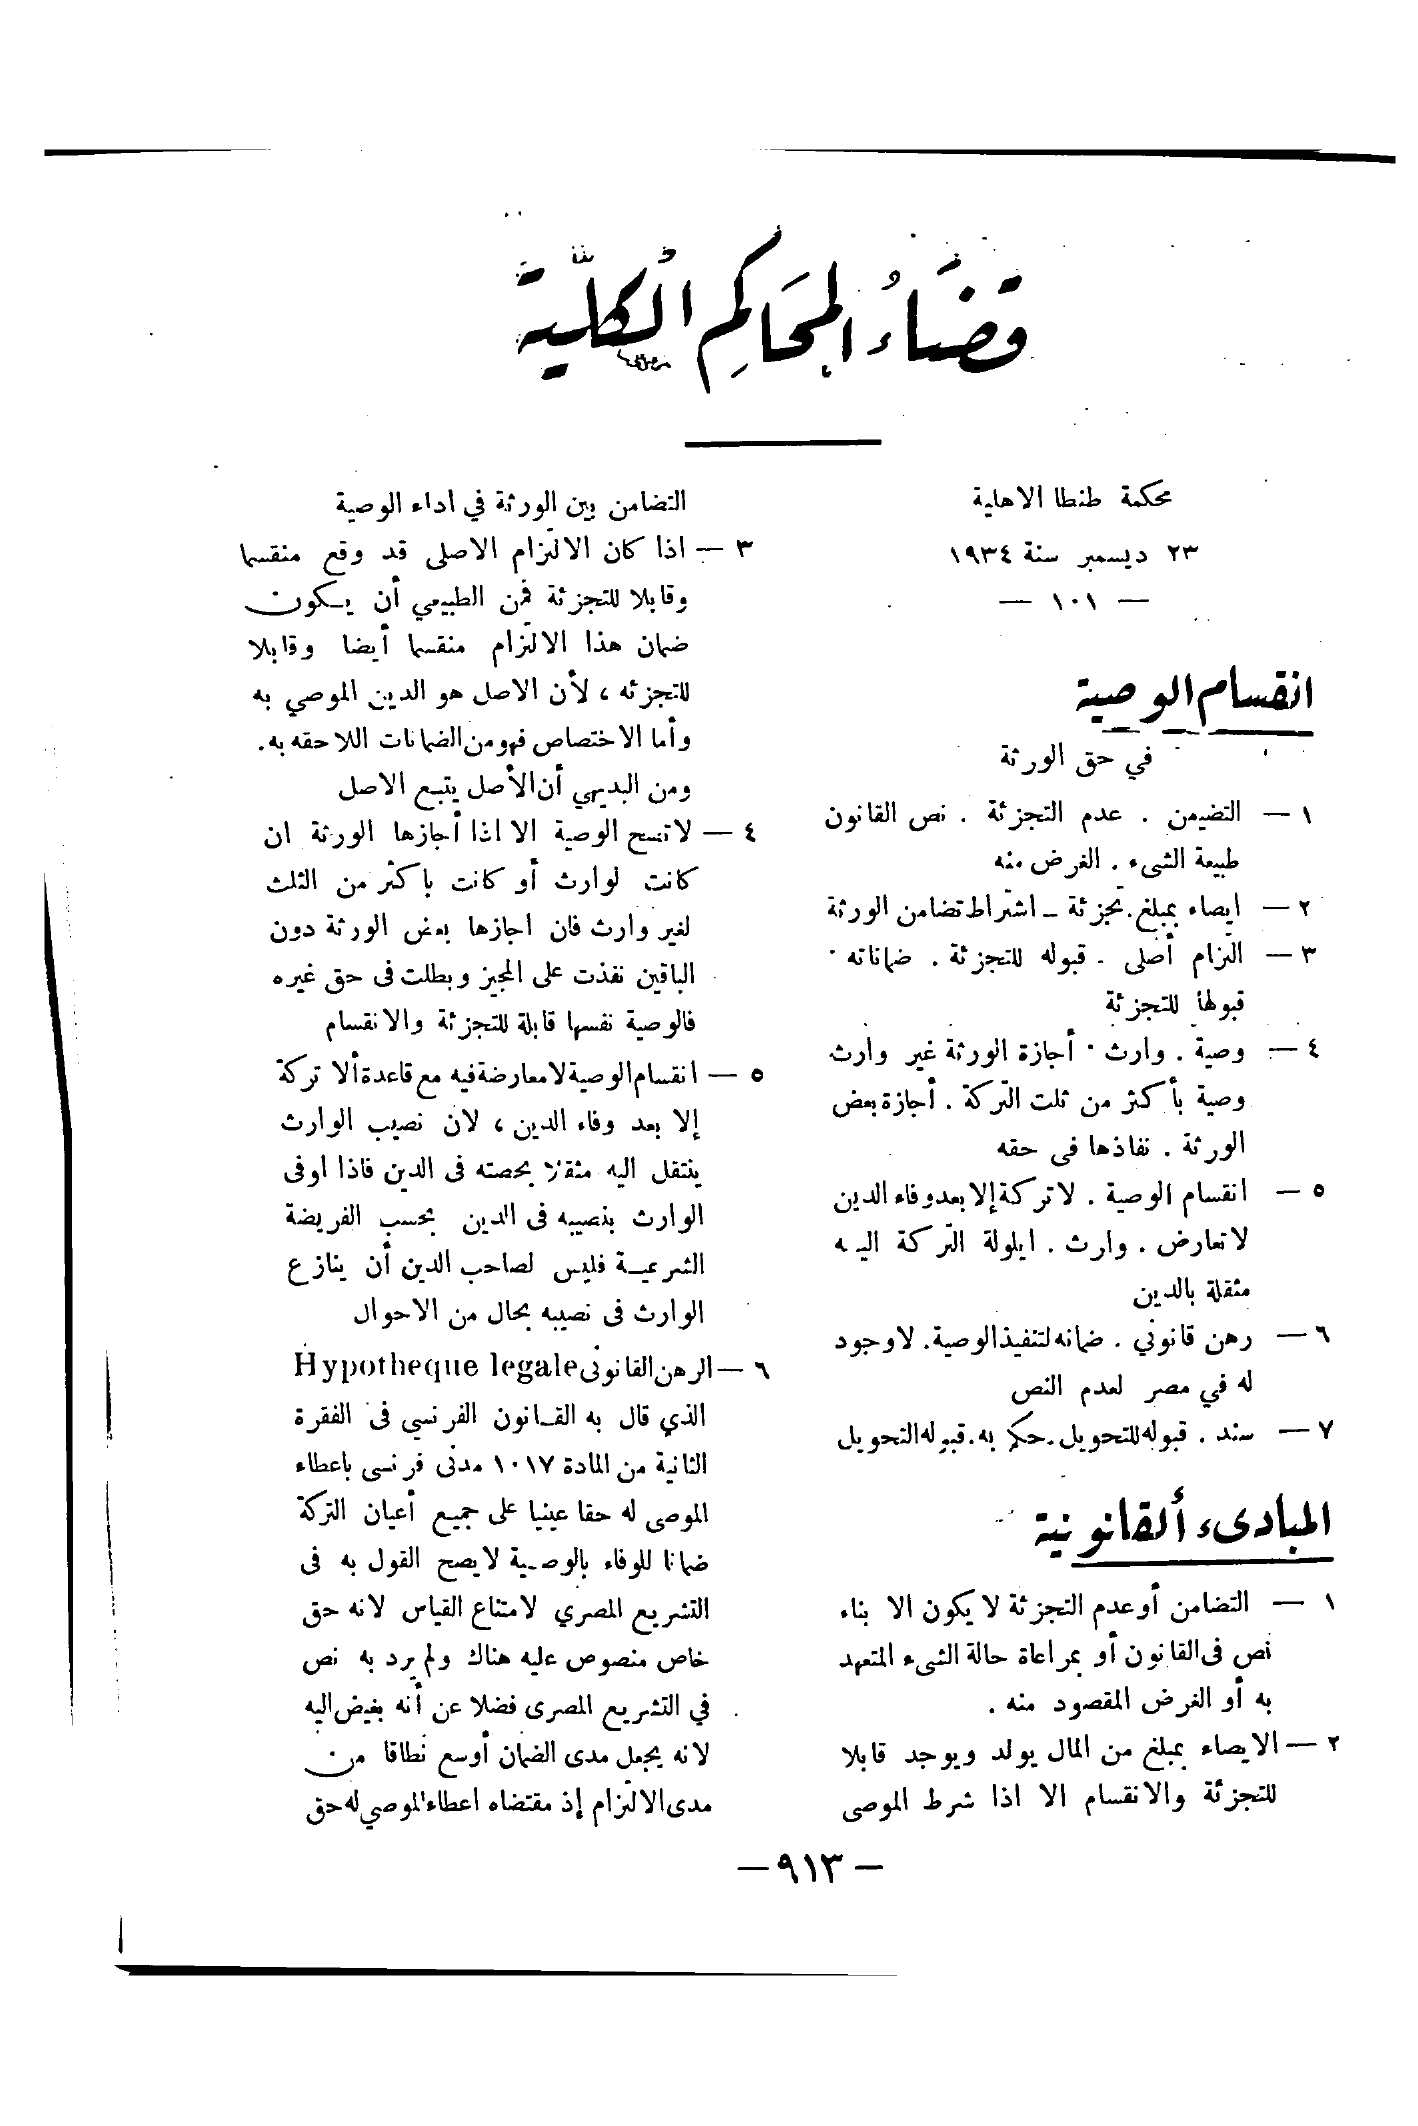 قضاء المحاكم الكلية
محكمة طنطا الاهلية
٢٣ ديسمبر سنة ١٩٣٤
— ١٠١ —
انقسام الوصية
في حق الورثة
١ — التضيمن . عدم التجزئة . نص القانون
طبيعة الشىء . الغرض منه
٢ — ايصاء بمبلغ . تجزئة ـ اشتراط تضامن الورثة
٣ — التزام أصلى . قبوله للتجزئة . ضماناته .
قبولها للتجزئة
٤ — وصية . وارث . أجازة الورثة غير وارث
وصية بأكثر من ثلث التركة . أجازة بعض
الورثة . نفاذها فى حقه
٥ — انقسام الوصية . لا تركة إلا بعد وفاء الدين
لا تعارض . وارث . ايلولة التركة اليه
مثقلة بالدين
٦ — رهن قانوني . ضمانه لتنفيذ الوصية . لا وجود
له في مصر لعدم النص
٧ — سند . قبوله للتحويل . حكم به . قبوله التحويل
المبادىء ألقانونية
١ — التضامن أو عدم التجزئة لا يكون الا بناء
نص فى القانون أو بمراعاة حالة الشىء المتعهد
به أو الغرض المقصود منه .
٢ — الايصاء بمبلغ من المال يولد ويوجد قابلا
للتجزئة والانقسام الا اذا شرط الموصى
التضامن بين الورثة في اداء الوصية
٣ — اذا كان الالتزام الاصلى قد وقع منقسما
وقابلا للتجزئة فمن الطبيعي أن يكون
ضمان هذا الالتزام منقسما أيضا وقابلا
للتجزئه ، لأن الاصل هو الدين الموصي به
وأما الاختصاص فهو من الضمانات اللاحقه به .
ومن البديهي أن الأصل يتبع الاصل
٤ — لا تصح الوصية الا اذا أجازها الورثة ان
كانت لوارث أو كانت باكثر من الثلث
لغير وارث فان اجازها بعض الورثة دون
الباقين نفذت على المجيز وبطلت فى حق غيره
فالوصية نفسها قابلة للتجزئة والانقسام
٥ — انقسام الوصية لا معارضة فيه مع قاعدة ألا تركة
إلا بعد وفاء الدين ، لان نصيب الوارث
ينتقل اليه مثقلا بحصته فى الدين فاذا اوفى
الوارث بنصيبه فى الدين بحسب الفريضة
الشرعية فليس لصاحب الدين أن ينازع
الوارث فى نصيبه بحال من الاحوال
٦ — الرهن القانونى Hypotheque legale
الذي قال به القانون الفرنسي فى الفقرة
الثانية من المادة ١٠١٧ مدنى فرنسى باعطاء
الموصى له حقا عينيا على جميع أعيان التركة
ضمانا للوفاء بالوصية لا يصح القول به فى
التشريع المصري لامتناع القياس لانه حق
خاص منصوص عليه هناك ولم يرد به نص
في التشريع المصرى فضلا عن أنه بغيض اليه
لانه يجعل مدى الضمان أوسع نطاقا من
مدى الالتزام إذ مقتضاه اعطاء الموصي له حق
— ٩١٣ —